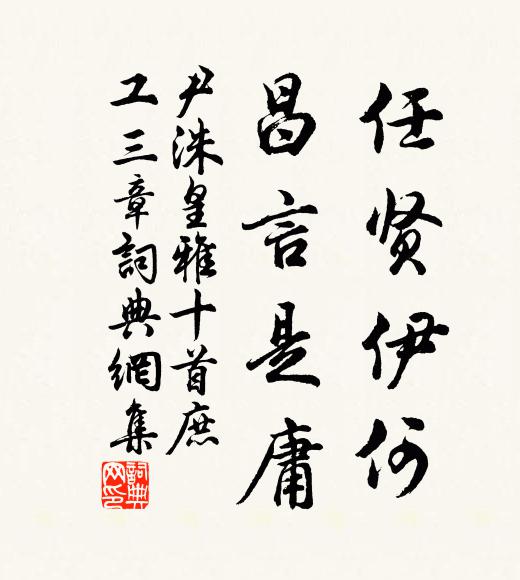 任贤伊何
昌言是庸
尹洙皇雅十首庶
工三章詞典網集
詞典
网印